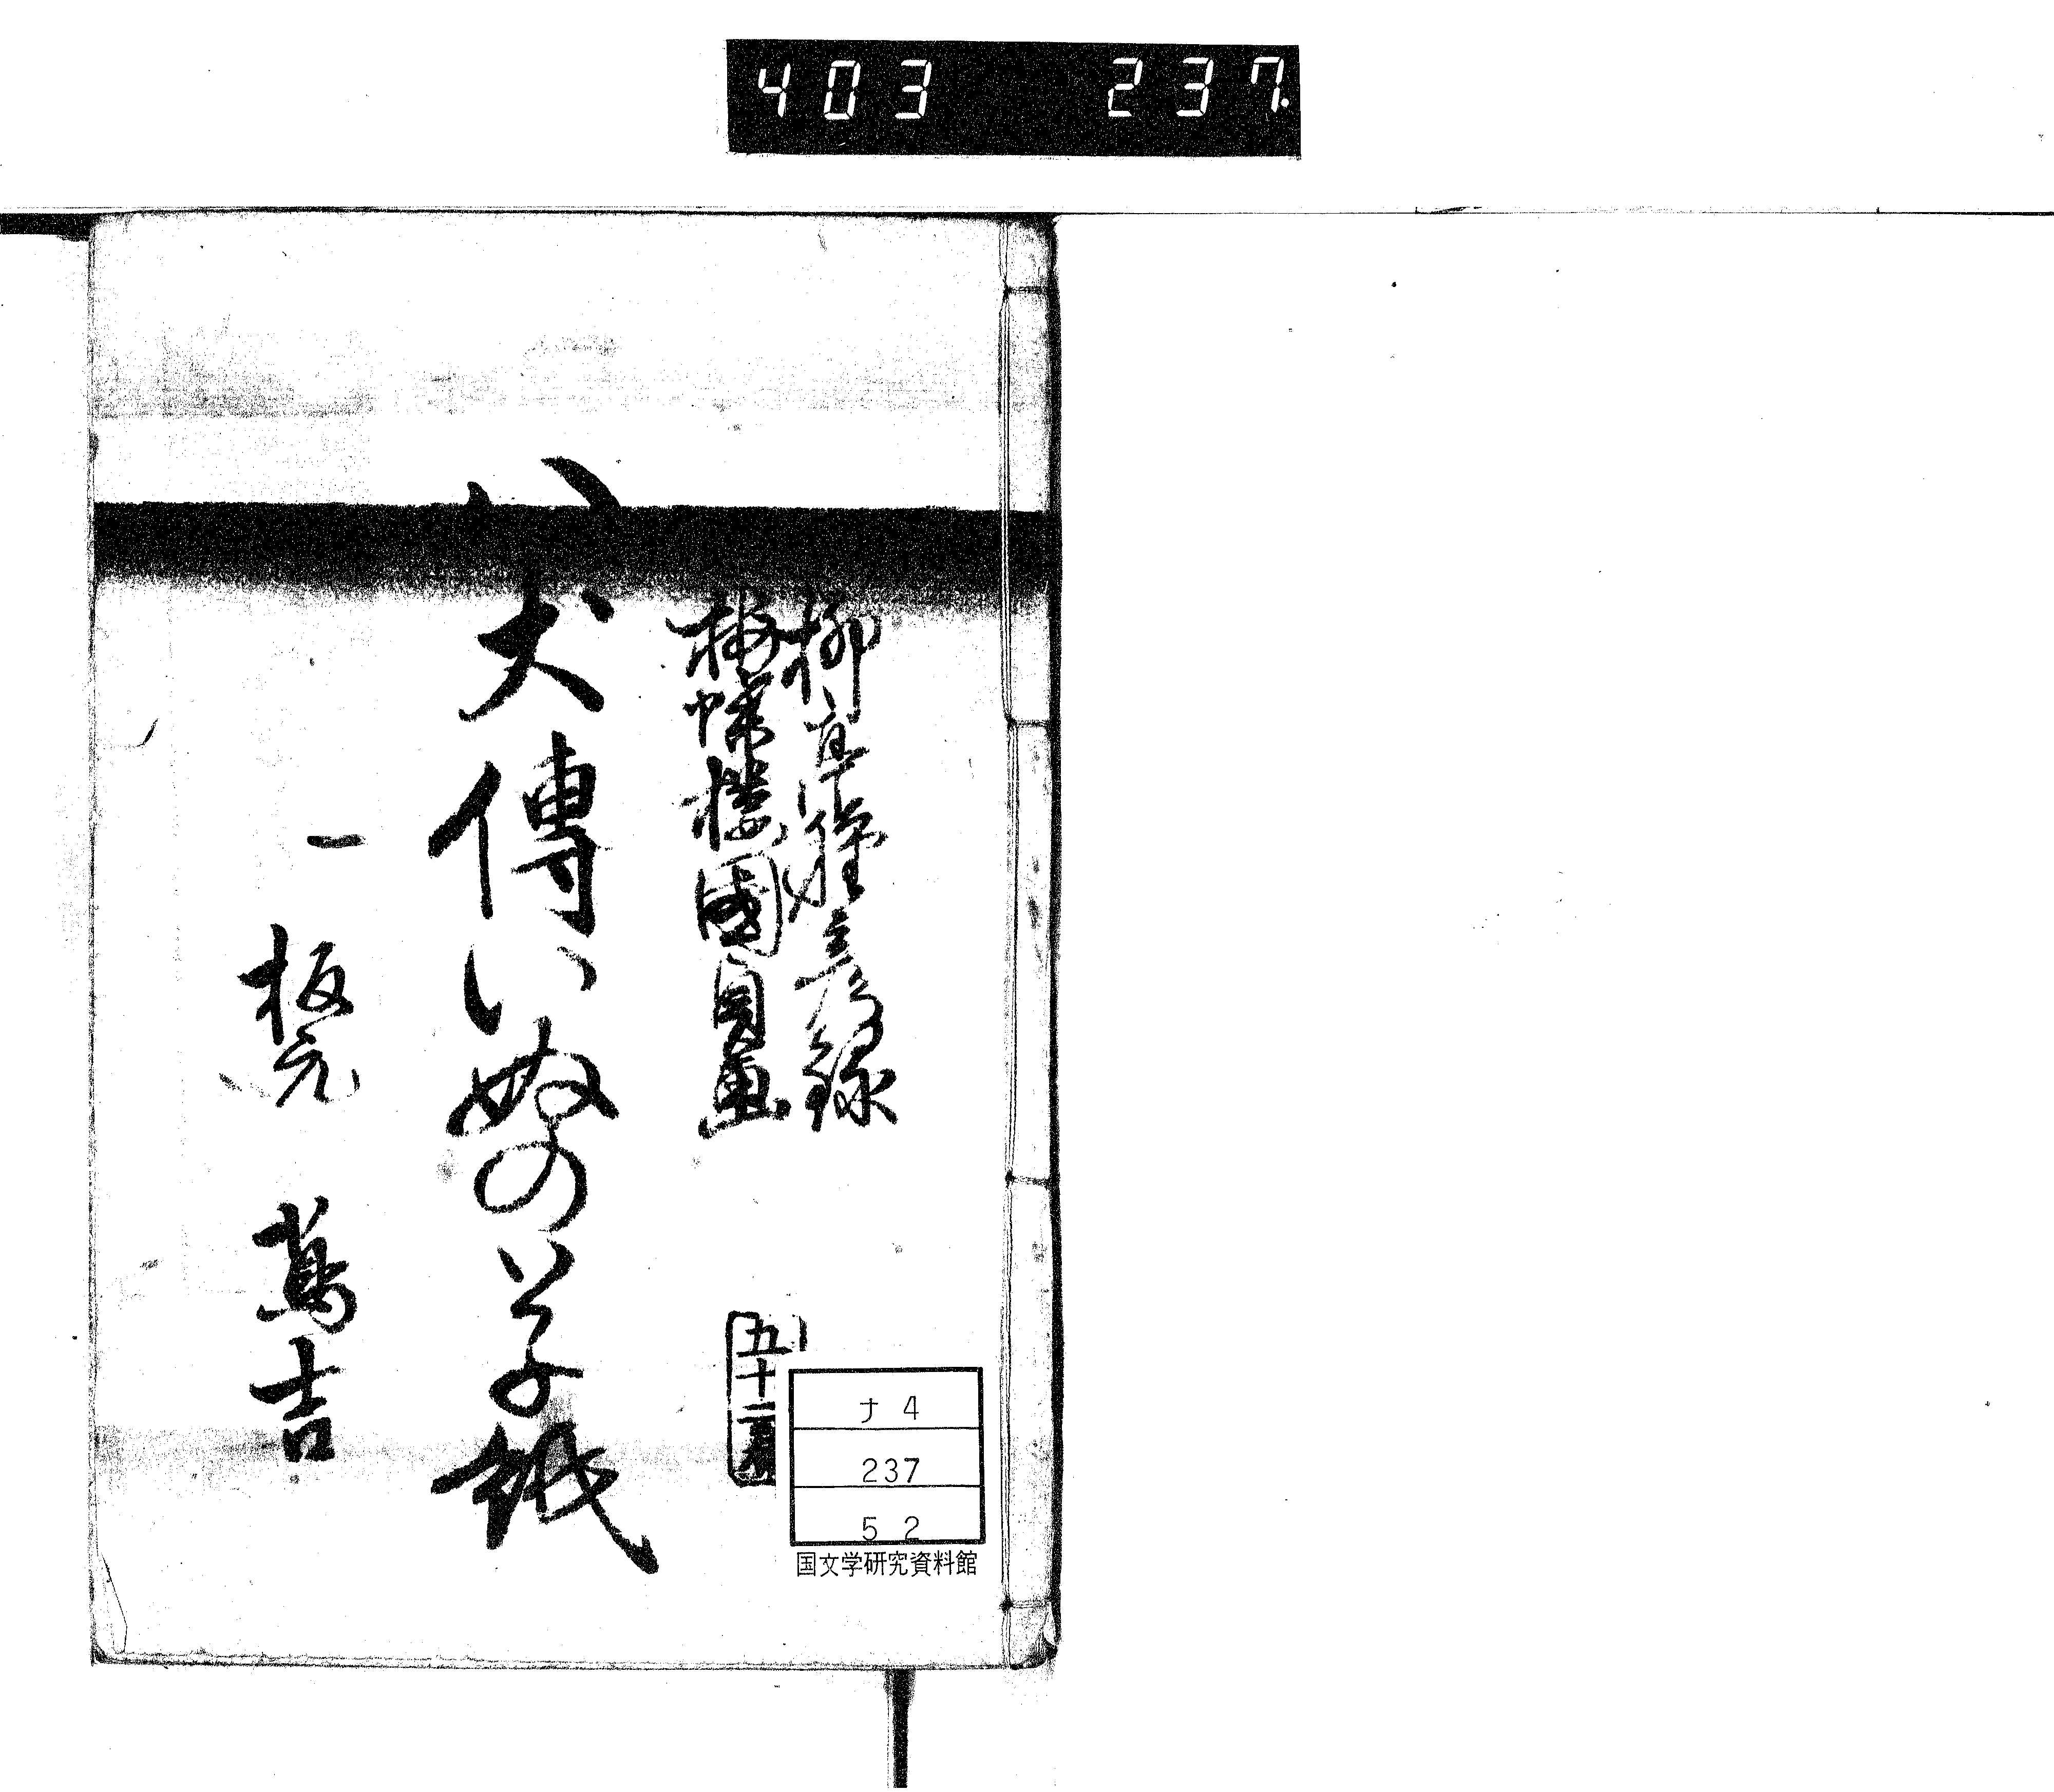 403 237
柳亭種彦録
梅蝶樓國貞画
五十二
八犬傳いぬの草紙
一 板元 蔦吉
ナ4
237
52
国文学研究資料館